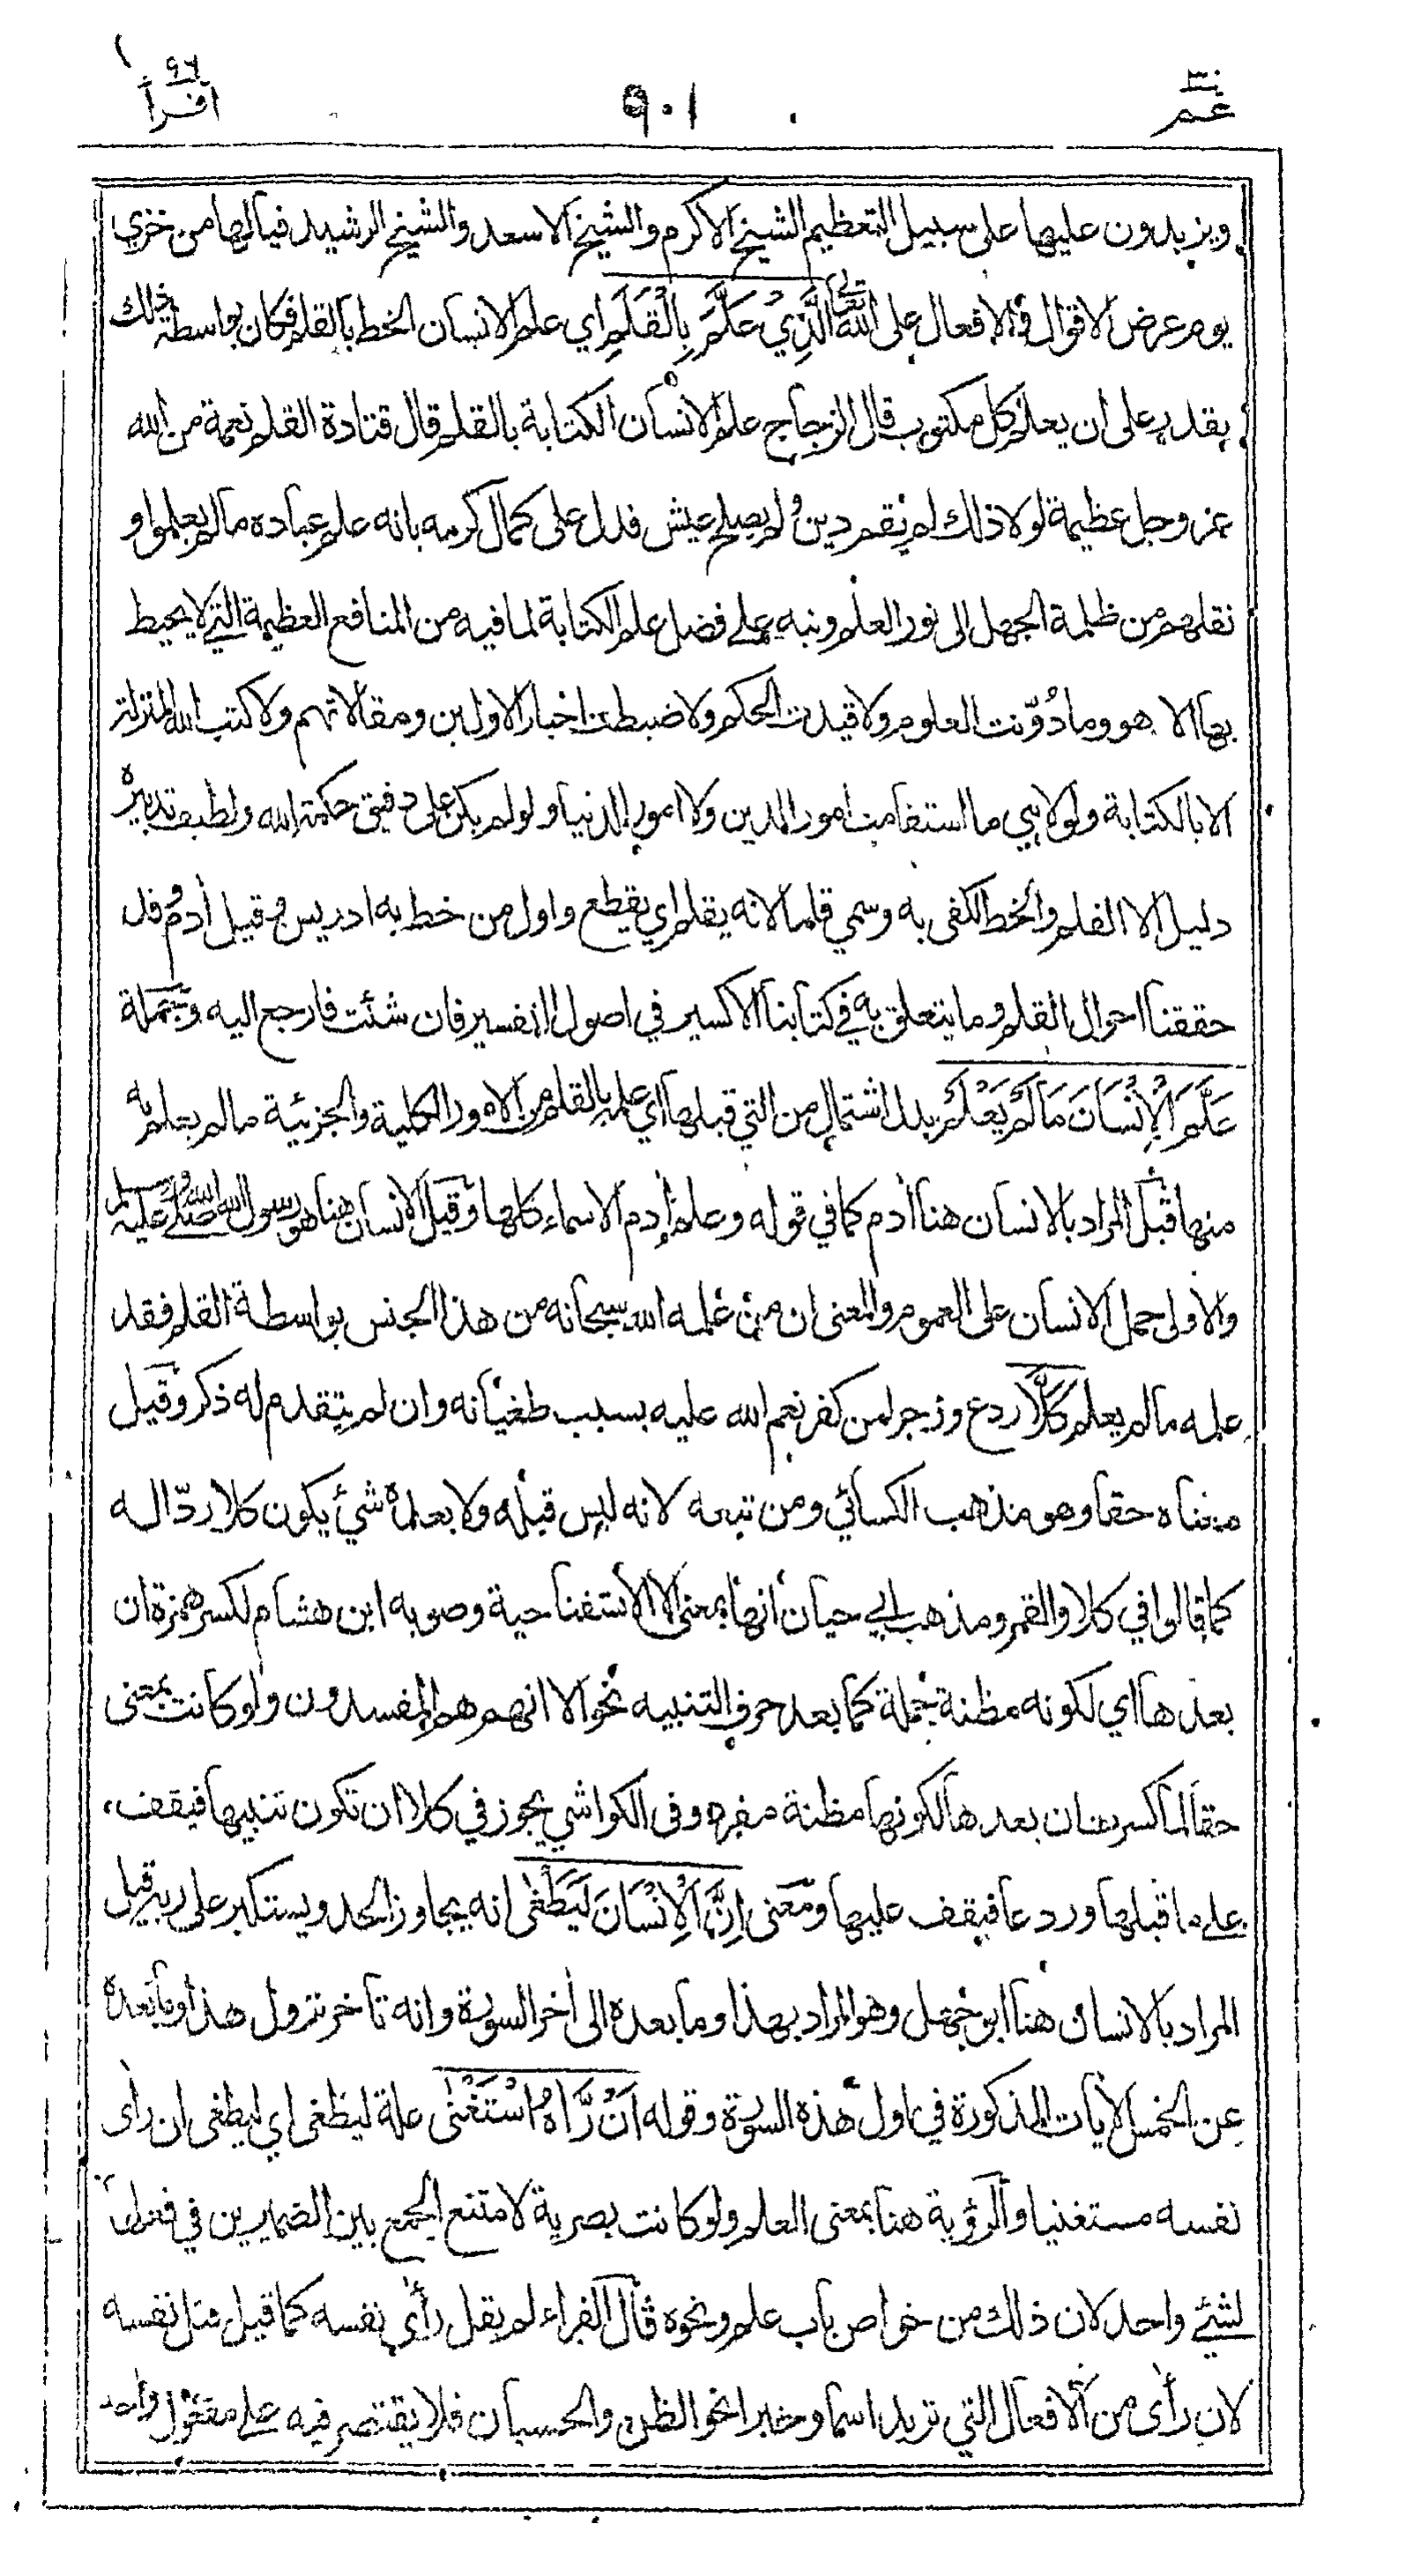 عم ٣٠
٩٠١
اقرأ ٩٦
ويزيدون عليها على سبيل التعظيم الشيخ الاكرم والشيخ الاسعد والشيخ الرشيد فيا لها من خزي
يوم عرض الاقوال والافعال على الله تعالى الَّذِيْ عَلَّمَ بِالْقَلَمِ اي علم الانسان الخط بالقلم فكان بواسطة ذلك
يقدر على ان يعلم كل مكتوب قال الزجاج علم الانسان الكتابة بالقلم قال قتادة القلم نعمة من الله
عز وجل عظيمة لولا ذلك لم يقم دين ولم يصلح عيش فدل على كمال كرمه بانه علم عباده ما لم يعلموا و
نقلهم من ظلمة الجهل الى نور العلم ونبه على فضل علم الكتابة لما فيه من المنافع العظيمة التي لا يحيط
بها الا هو وما دُوّنت العلوم ولا قيدت الحكم ولا ضبطت اخبار الاولين ومقالاتهم ولا كتب الله المنزلة
الا بالكتابة ولولا هي ما استقامت امور الدين ولا امور الدنيا ولو لم يكن على دقيق حكمة الله ولطيف تدبيره
دليل الا القلم والخط لكفى به وسمي قلما لانه يقلم اي يقطع واول من خط به ادريس وقيل أدم وقد
حققنا احوال القلم وما يتعلق به في كتابنا الاكسير في اصول التفسير فان شئت فارجع اليه وجملة
عَلَّمَ الْاِنْسَانَ مَا لَمْ يَعْلَمْ بدل اشتمال من التي قبلها اي علمه بالقلم من الامور الكلية والجزئية ما لم يعلم به
منها قيل المراد بالانسان هنا أدم كما في قوله وعلم أدم الاسماء كلها وقيل الانسان هنا هو رسول الله صلى الله عليه وسلم
والاولى حمل الانسان على العموم والمعنى ان من علمه الله سبحانه من هذا الجنس بواسطة القلم فقد
علمه ما لم يعلم كَلَّا ردع وزجر لمن كفر نعم الله عليه بسبب طغيانه وان لم يتقدم له ذكر وقيل
معناه حقا وهو مذهب الكسائي ومن تبعه لانه ليس قبله ولا بعده شيء يكون كلا ردّا له
كما قالوا في كلا والقمر ومذهب ابي حيان انها بمعنى الا الاستفتاحية وصوبه ابن هشام لكسر همزة ان
بعدها اي لكونه مظنة جملة كما بعد حرف التنبيه نحو الا انهم هم المفسدون ولو كانت بمعنى
حقا لما كسرت ان بعدها لكونها مظنة مفرد وفى الكواشي يجوز في كلا ان تكون تنبيها فيقف
على ما قبلها وردعا فيقف عليها ومعنى اِنَّ الْاِنْسَانَ لَيَطْغٰى انه يجاوز الحد ويستكبر على ربه قيل
المراد بالانسان هنا ابو جهل وهو المراد بهذا وما بعده الى أخر السورة وانه تأخر نزول هذا وما بعده
عن الخمس الأيات المذكورة في اول هذه السورة وقوله اَنْ رَّاٰهُ اسْتَغْنٰى علة ليطغى اي ليطغى ان رأى
نفسه مستغنيا والرؤية هنا بمعنى العلم ولو كانت بصرية لامتنع الجمع بين الضميرين في فعلها
لشئ واحد لان ذلك من خواص باب علم ونحوه قال الفراء لم يقل رأى نفسه كما قيل قتل نفسه
لان رأى من الافعال التي تريد اسما وخبرا نحو الظن والحسبان فلا يقتصر فيه على مفعول واحد